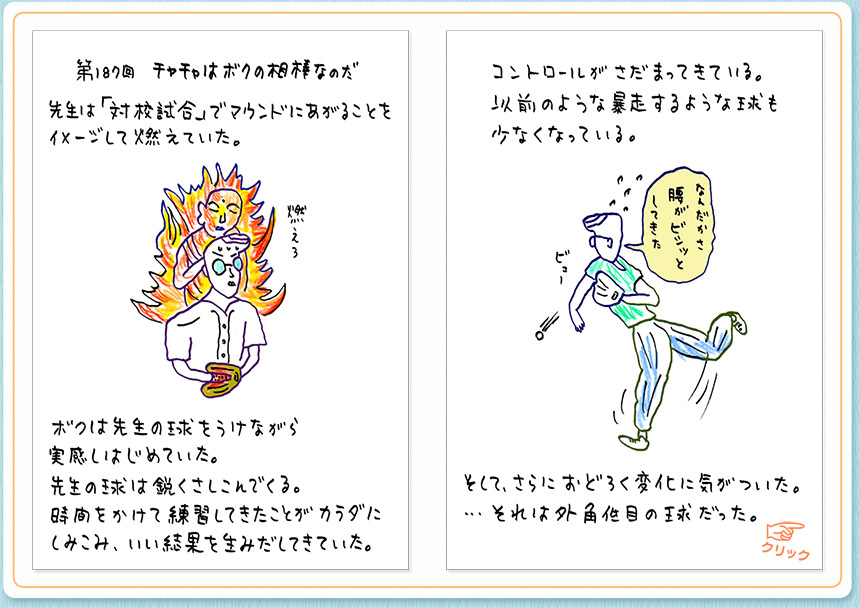 第187回 チャチャはボクの相棒なのだ
先生は「対校試合」でマウンドにあがることを
イメージして燃えていた。
燃えろ
ボクは先生の球をうけながら
実感しはじめていた。
先生の球は鋭くさしこんでくる。
時間をかけて練習してきたことがカラダに
しみこみ、いい結果を生みだしてきていた。
コントロールがさだまってきている。
以前のような暴走するような球も
少なくなっている。
なんだかさ
腰がビシッと
してきた
ビュー
そして、さらにおどろく変化に気がついた。
…それは外角低目の球だった。
クリック